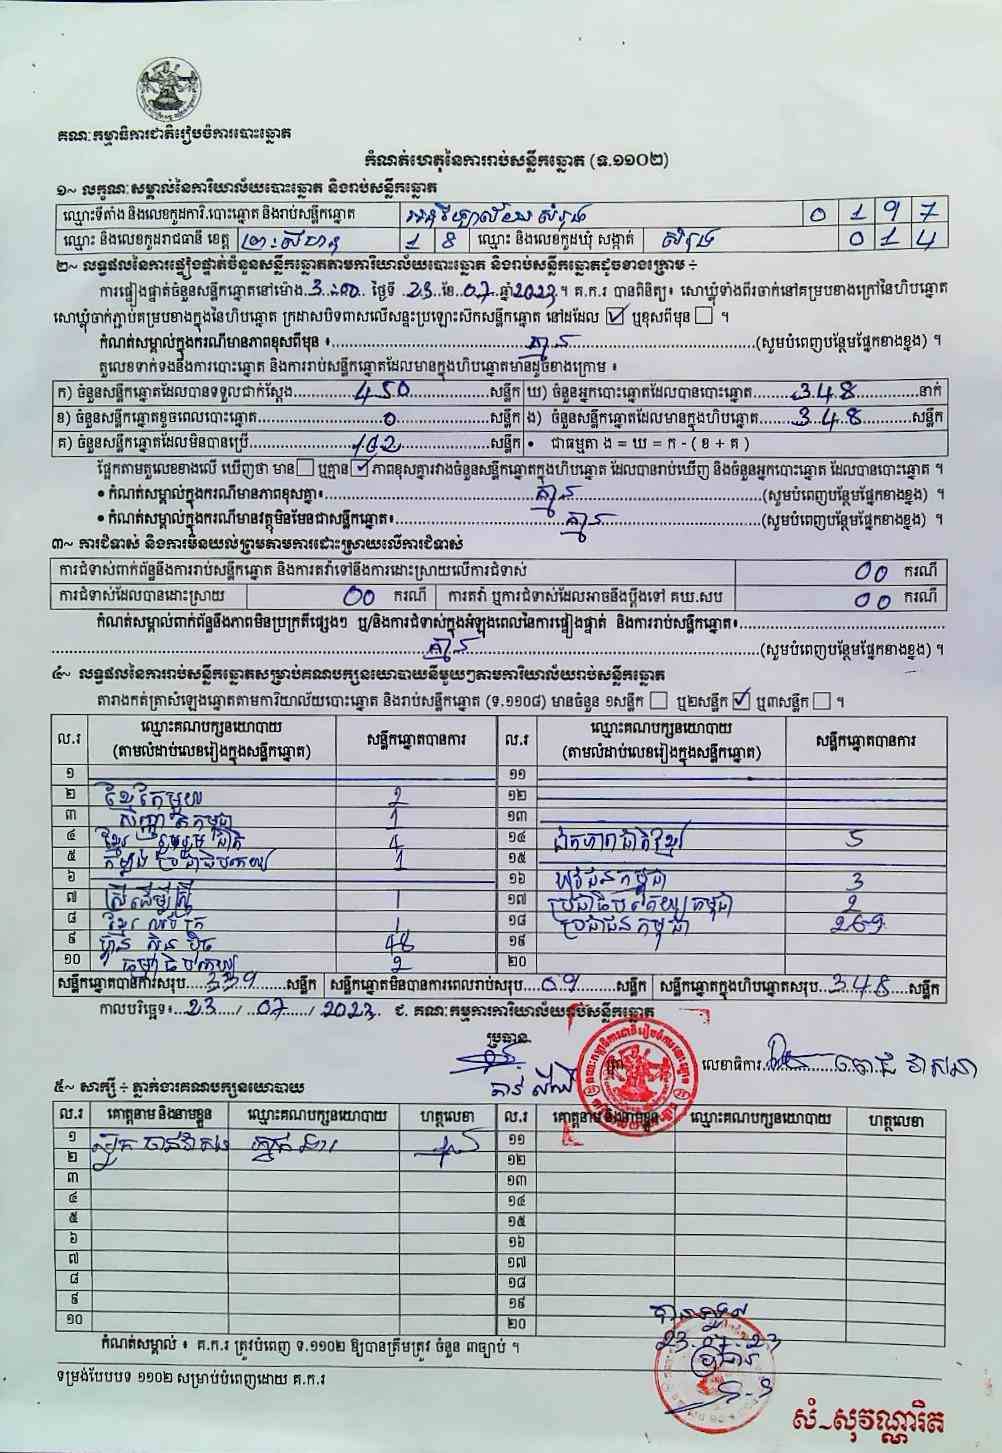 គណៈកម្មាធិការជាតិរៀបចំការបោះឆ្នោត
កំណត់ហេតុនៃការរាប់សន្លឹកឆ្នោត (ទ.១១០២)
១~ លក្ខណៈសម្គាល់នៃការិយាល័យបោះឆ្នោត និងរាប់សន្លឹកឆ្នោត
ឈ្មោះទីតាំង និងលេខកូដការិ.បោះឆ្នោត និងរាប់សន្លឹកឆ្នោត អនុវិទ្យាល័យ សំរុង 0 1 9 7
ឈ្មោះ និងលេខកូដរាជធានី ខេត្ត ព្រះសីហនុ 1 8 ឈ្មោះ និងលេខកូដឃុំ សង្កាត់ សំរុង 0 1 4
២~ លទ្ធផលនៃការផ្ទៀងផ្ទាត់ចំនួនសន្លឹកឆ្នោតតាមការិយាល័យបោះឆ្នោត និងរាប់សន្លឹកឆ្នោតដូចខាងក្រោម ÷
ការផ្ទៀងផ្ទាត់ចំនួនសន្លឹកឆ្នោតនៅម៉ោង 3:00 ថ្ងៃទី 23 ខែ 07 ឆ្នាំ 2023 ។ គ.ក.រ បានពិនិត្យ៖ សោឃ្លុំទាំងពីរចាក់នៅគម្របខាងក្រៅនៃហិបឆ្នោត
សោឃ្លុំចាក់ភ្ជាប់គម្របខាងក្នុងនៃហិបឆ្នោត ក្រដាសបិទពាសលើសន្ទះប្រឡោះស៊កសន្លឹកឆ្នោត នៅដដែល ☑ ឬខុសពីមុន ☐ ។
កំណត់សម្គាល់ក្នុងករណីមានភាពខុសពីមុន ៖ គ្មាន (សូមបំពេញបន្ថែមផ្នែកខាងខ្នង) ។
តួលេខទាក់ទងនឹងការបោះឆ្នោត និងការរាប់សន្លឹកឆ្នោតដែលមានក្នុងហិបឆ្នោតមានដូចខាងក្រោម ៖
ក) ចំនួនសន្លឹកឆ្នោតដែលបានទទួលជាក់ស្តែង 450 សន្លឹក ឃ) ចំនួនអ្នកបោះឆ្នោតដែលបានបោះឆ្នោត 348 នាក់
ខ) ចំនួនសន្លឹកឆ្នោតខូចពេលបោះឆ្នោត 0 សន្លឹក ង) ចំនួនសន្លឹកឆ្នោតដែលមានក្នុងហិបឆ្នោត 348 សន្លឹក
គ) ចំនួនសន្លឹកឆ្នោតដែលមិនបានប្រើ 102 សន្លឹក • ជាធម្មតា ង = ឃ = ក - ( ខ + គ )
ផ្អែកតាមតួលេខខាងលើ ឃើញថា មាន ☐ ឬគ្មាន ☑ ភាពខុសគ្នារវាងចំនួនសន្លឹកឆ្នោតក្នុងហិបឆ្នោត ដែលបានរាប់ឃើញ និងចំនួនអ្នកបោះឆ្នោត ដែលបានបោះឆ្នោត ។
• កំណត់សម្គាល់ក្នុងករណីមានភាពខុសគ្នា៖ គ្មាន (សូមបំពេញបន្ថែមផ្នែកខាងខ្នង) ។
• កំណត់សម្គាល់ក្នុងករណីមានវត្ថុមិនមែនជាសន្លឹកឆ្នោត៖ គ្មាន (សូមបំពេញបន្ថែមផ្នែកខាងខ្នង) ។
៣~ ការជំទាស់ និងការមិនយល់ព្រមតាមការដោះស្រាយលើការជំទាស់
ការជំទាស់ពាក់ព័ន្ធនឹងការរាប់សន្លឹកឆ្នោត និងការតវ៉ាទៅនឹងការដោះស្រាយលើការជំទាស់ 00 ករណី
ការជំទាស់ដែលបានដោះស្រាយ 00 ករណី ការតវ៉ា ឬការជំទាស់ដែលអាចនឹងប្តឹងទៅ គឃ.សប 00 ករណី
កំណត់សម្គាល់ពាក់ព័ន្ធនឹងភាពមិនប្រក្រតីផ្សេងៗ ឬ/និងការជំទាស់ក្នុងអំឡុងពេលនៃការផ្ទៀងផ្ទាត់ និងការរាប់សន្លឹកឆ្នោត៖
គ្មាន (សូមបំពេញបន្ថែមផ្នែកខាងខ្នង) ។
៤~ លទ្ធផលនៃការរាប់សន្លឹកឆ្នោតសម្រាប់គណបក្សនយោបាយនីមួយៗតាមការិយាល័យរាប់សន្លឹកឆ្នោត
តារាងកត់ត្រាសំឡេងឆ្នោតតាមការិយាល័យបោះឆ្នោត និងរាប់សន្លឹកឆ្នោត (ទ.១១០៨) មានចំនួន ១សន្លឹក ☐ ឬ២សន្លឹក ☑ ឬ៣សន្លឹក ☐ ។
ល.រ ឈ្មោះគណបក្សនយោបាយ (តាមលំដាប់លេខរៀងក្នុងសន្លឹកឆ្នោត) សន្លឹកឆ្នោតបានការ ល.រ ឈ្មោះគណបក្សនយោបាយ (តាមលំដាប់លេខរៀងក្នុងសន្លឹកឆ្នោត) សន្លឹកឆ្នោតបានការ
១ ១១
២ ខ្មែរតែមួយ 2 ១២
៣ សញ្ជាតិកម្ពុជា 1 ១៣
៤ ខ្មែរ រួបរួម ជាតិ 4 ១៤ ឯកភាពជាតិខ្មែរ 5
៥ កម្លាំង ប្រជាធិបតេយ្យ 1 ១៥
៦ ១៦ យុវជនកម្ពុជា 3
៧ ស្រីដើម្បីស្រ្តី 1 ១៧ ប្រជាធិបតេយ្យកម្ពុជា 2
៨ ខ្មែរ 1 ១៨ ប្រជាជនកម្ពុជា 269
៩ ហ្វ៊ុន ស៊ិន ប៉ិច 48 ១៩
១០ ធម្មាធិបតេយ្យ 2 ២០
សន្លឹកឆ្នោតបានការសរុប 339 សន្លឹក សន្លឹកឆ្នោតមិនបានការពេលរាប់សរុប 09 សន្លឹក សន្លឹកឆ្នោតក្នុងហិបឆ្នោតសរុប 348 សន្លឹក
កាលបរិច្ឆេទ៖ 23 / 07 / 2023 ជ. គណៈកម្មការការិយាល័យរាប់សន្លឹកឆ្នោត
ប្រធាន
លេខាធិការ
៥~ សាក្សី ÷ ភ្នាក់ងារគណបក្សនយោបាយ
ល.រ គោត្តនាម និងនាមខ្លួន ឈ្មោះគណបក្សនយោបាយ ហត្ថលេខា ល.រ គោត្តនាម និងនាមខ្លួន ឈ្មោះគណបក្សនយោបាយ ហត្ថលេខា
១ ១១
២ ១២
៣ ១៣
៤ ១៤
៥ ១៥
៦ ១៦
៧ ១៧
៨ ១៨
៩ ១៩
១០ ២០
23.07.23
កំណត់សម្គាល់ ៖ គ.ក.រ ត្រូវបំពេញ ទ.១១០២ ឱ្យបានត្រឹមត្រូវ ចំនួន ៣ច្បាប់ ។
ទម្រង់បែបបទ ១១០២ សម្រាប់បំពេញដោយ គ.ក.រ
សំ-សុវណ្ណារិត